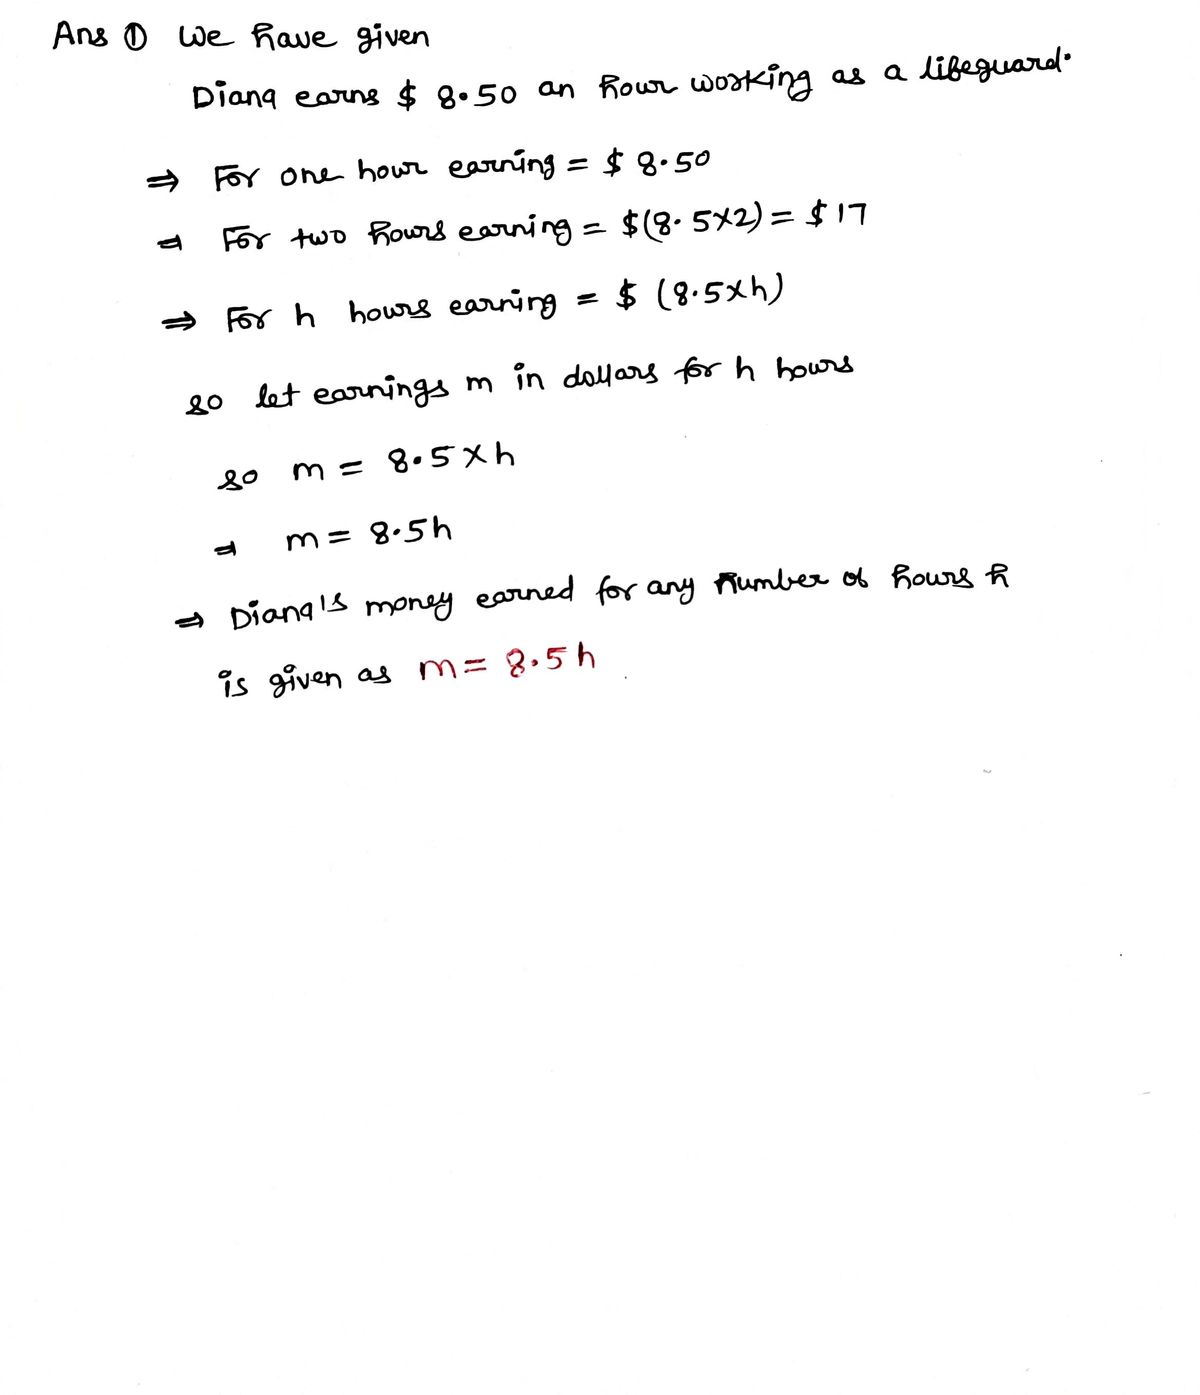 Ans ① We have given
Diana earns $ 8.50 an hour working as a lifeguard.
⇒ For one hour earning = $ 8.50
⇒ For two hours earning = $(8.5×2) = $17
⇒ For h hours earning = $ (8.5×h)
so let earnings m in dollars for h hours
so m = 8.5×h
⇒ m = 8.5h
⇒ Diana's money earned for any number of hours h
is given as m = 8.5h